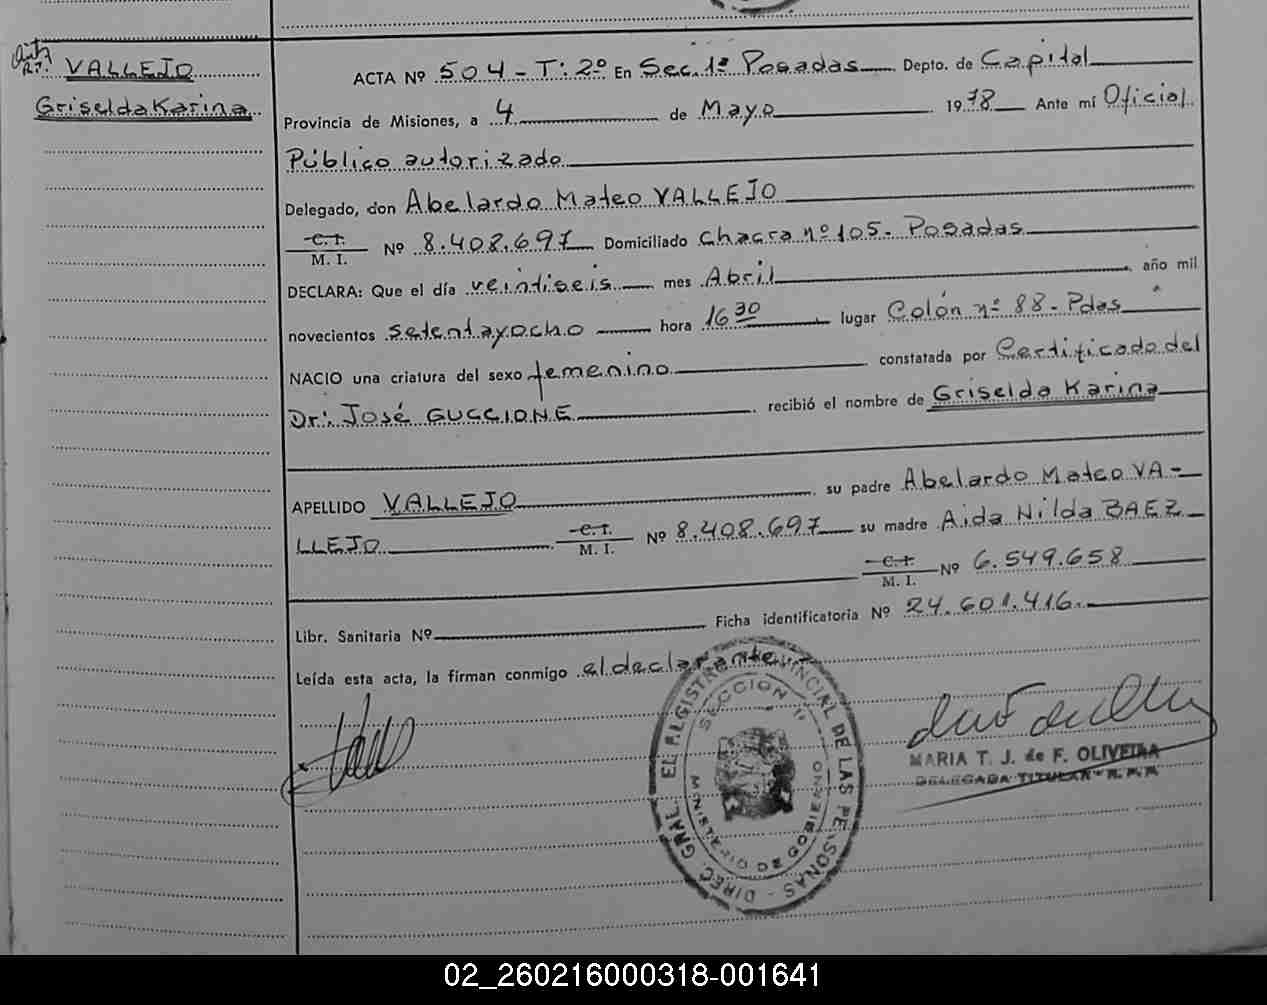 VALLEJO
Griselda Karina
ACTA Nº 504 - T: 2º En Sec. 1ª Posadas Depto. de Capital
Provincia de Misiones, a 4 de Mayo 1978 Ante mí Oficial
Público autorizado
Delegado, don Abelardo Mateo VALLEJO
C. I.
M. I. Nº 8.408.697 Domiciliado Chacra nº 105 - Posadas
DECLARA: Que el día veintiseis mes Abril año mil
novecientos setentayocho hora 16 30 lugar Colón nº 88 - Pdas
NACIO una criatura del sexo femenino constatada por Certificado del
Dr: José GUCCIONE recibió el nombre de Griselda Karina
APELLIDO VALLEJO su padre Abelardo Mateo VA-
LLEJO C. I. M. I. Nº 8.408.697 su madre Aida Nilda BAEZ
C. I. M. I. Nº 6.549.658
Libr. Sanitaria Nº Ficha identificatoria Nº 24.601.416.
Leída esta acta, la firman conmigo el declarante
DIREC. GRAL. EL REGISTRO PROVINCIAL DE LAS PERSONAS
SECCION 1ª
MINISTERIO DE GOBIERNO
MARIA T. J. de F. OLIVEIRA
DELEGADA TITULAR R.P.P.
02_260216000318-001641